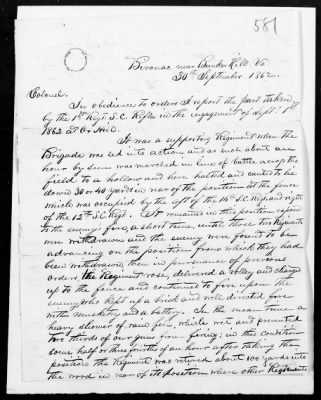 581
Bivouac near Bunker Hill Va.
30th September 1862.
Colonel.
In obedience to orders I report the part taken
by the 1st Regt. S.C. Rifles in the engagement of Sept. 1st
1862 at Ox Hill.
It was a supporting Regiment when the
Brigade was led into action and as such about an
hour by sun was marched in line of battle across the
field to a hollow and here halted and caused to lie
down 30 or 40 yards in rear of the position at the fence
which was occupied by the left of the 14th S.C. Regt. and right
of the 12th S.C. Regt. It remained in this position exposed
to the enemy's fire, a short time, until those two Regiments
were withdrawn and the enemy were found to be
advancing on the position from which they had
been withdrawn, then in pursuance of previous
orders, the Regiment rose, delivered a volley and charged
up to the fence and continued to fire upon the
enemy, who kept up a brisk and well directed fire
with musketry and a battery. In the mean time a
heavy shower of rain fell, which wet and prevented
two thirds of our guns from firing; in this condition
some half or three fourths of an hour after taking the
position the Regiment was retired about 100 yards into
the wood in rear of its position where other Regiments